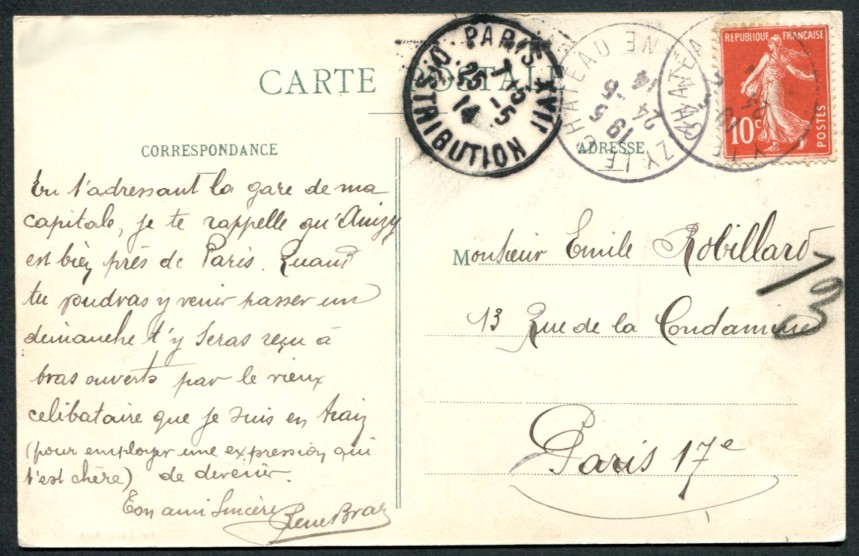 CARTE POSTALE
PARIS XVII
DISTRIBUTION
7 5
25 -5
14
ANIZY LE CHATEAU AISNE
19 5
24 -5
14
REPUBLIQUE FRANÇAISE
10c
POSTES
CORRESPONDANCE
ADRESSE
En t'adressant la gare de ma
capitale, je te rappelle qu'Anizy
est bien près de Paris. Quand
tu pudras y venir passer un
dimanche t'y seras reçu à
bras ouverts par le vieux
celibataire que je suis en train
(pour employer une expression qui
t'est chère) de devenir.
Ton ami sincère
Rene Bras
Monsieur Emile Robillard
13 Rue de la Condamine
Paris 17e
13